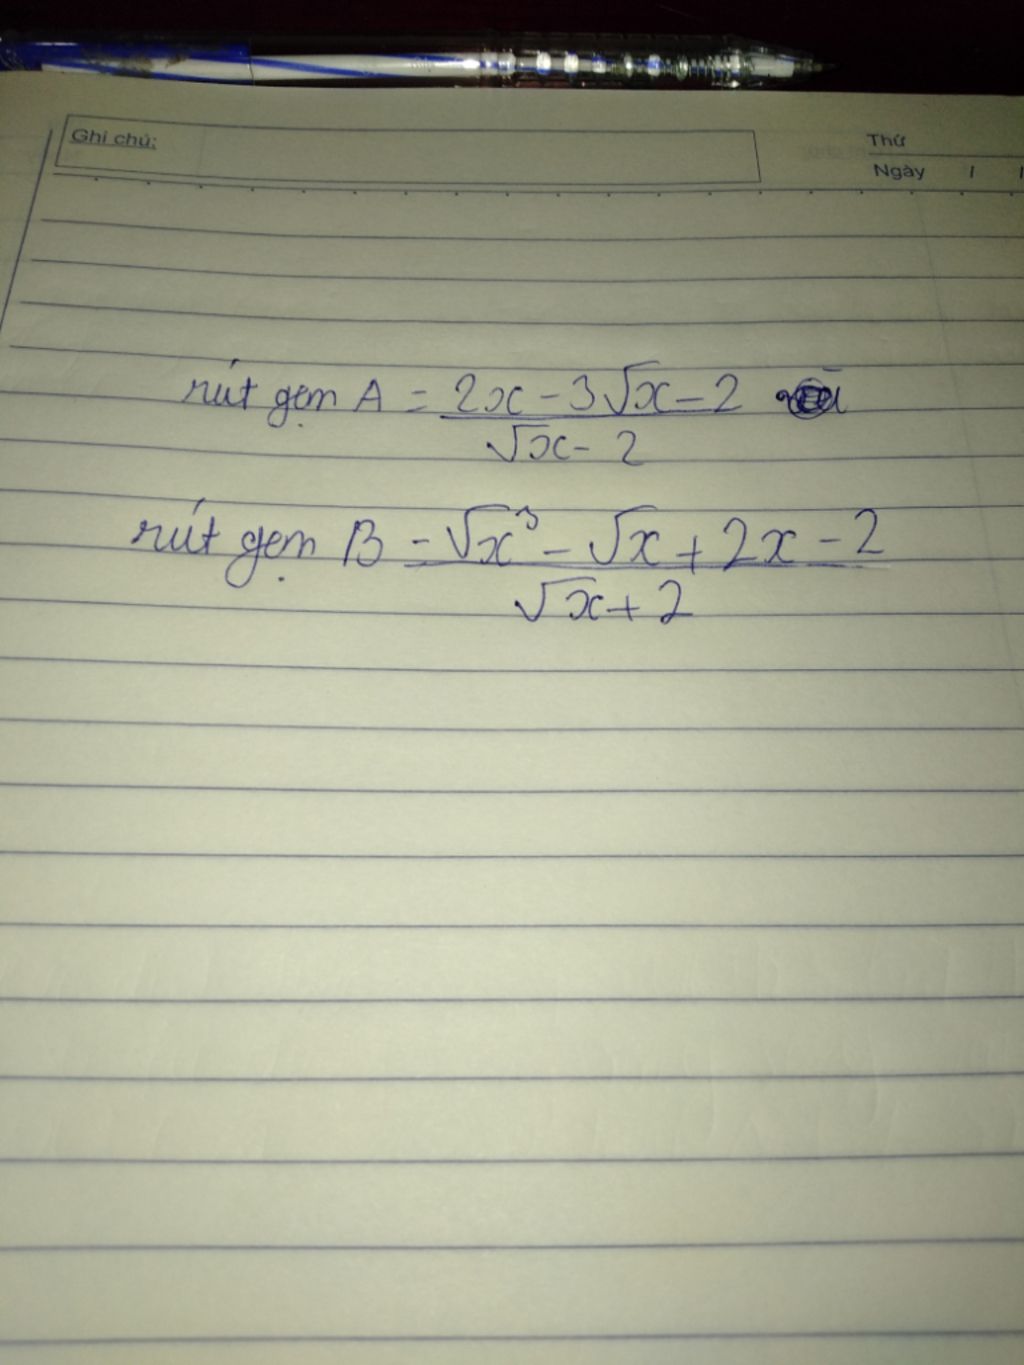 Ghi chú:
Thứ
Ngày / /
rút gọn A = (2x - 3√x - 2) / (√x - 2)
rút gọn B = (√x³ - √x + 2x - 2) / (√x + 2)